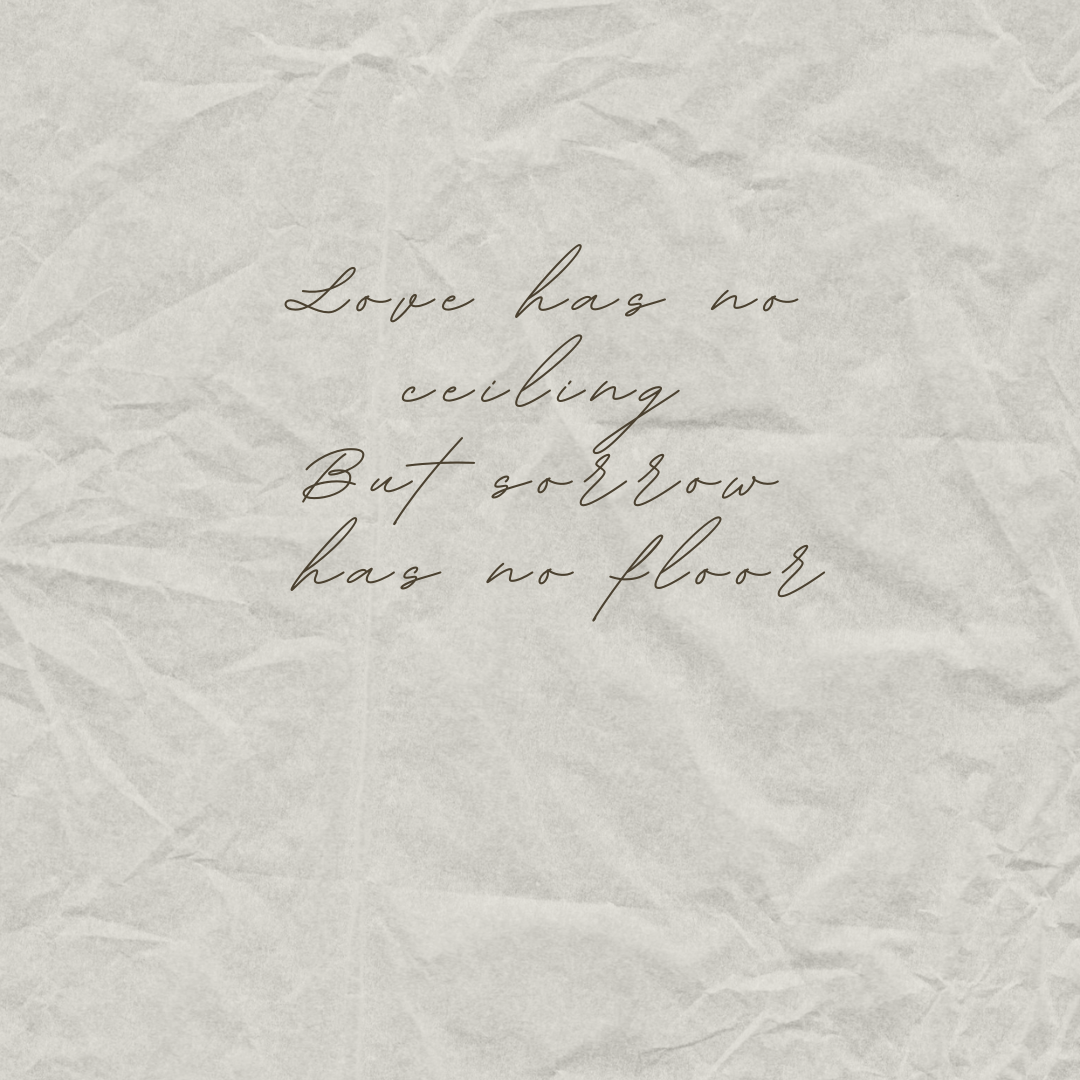 Love has no
ceiling
But sorrow
has no floor